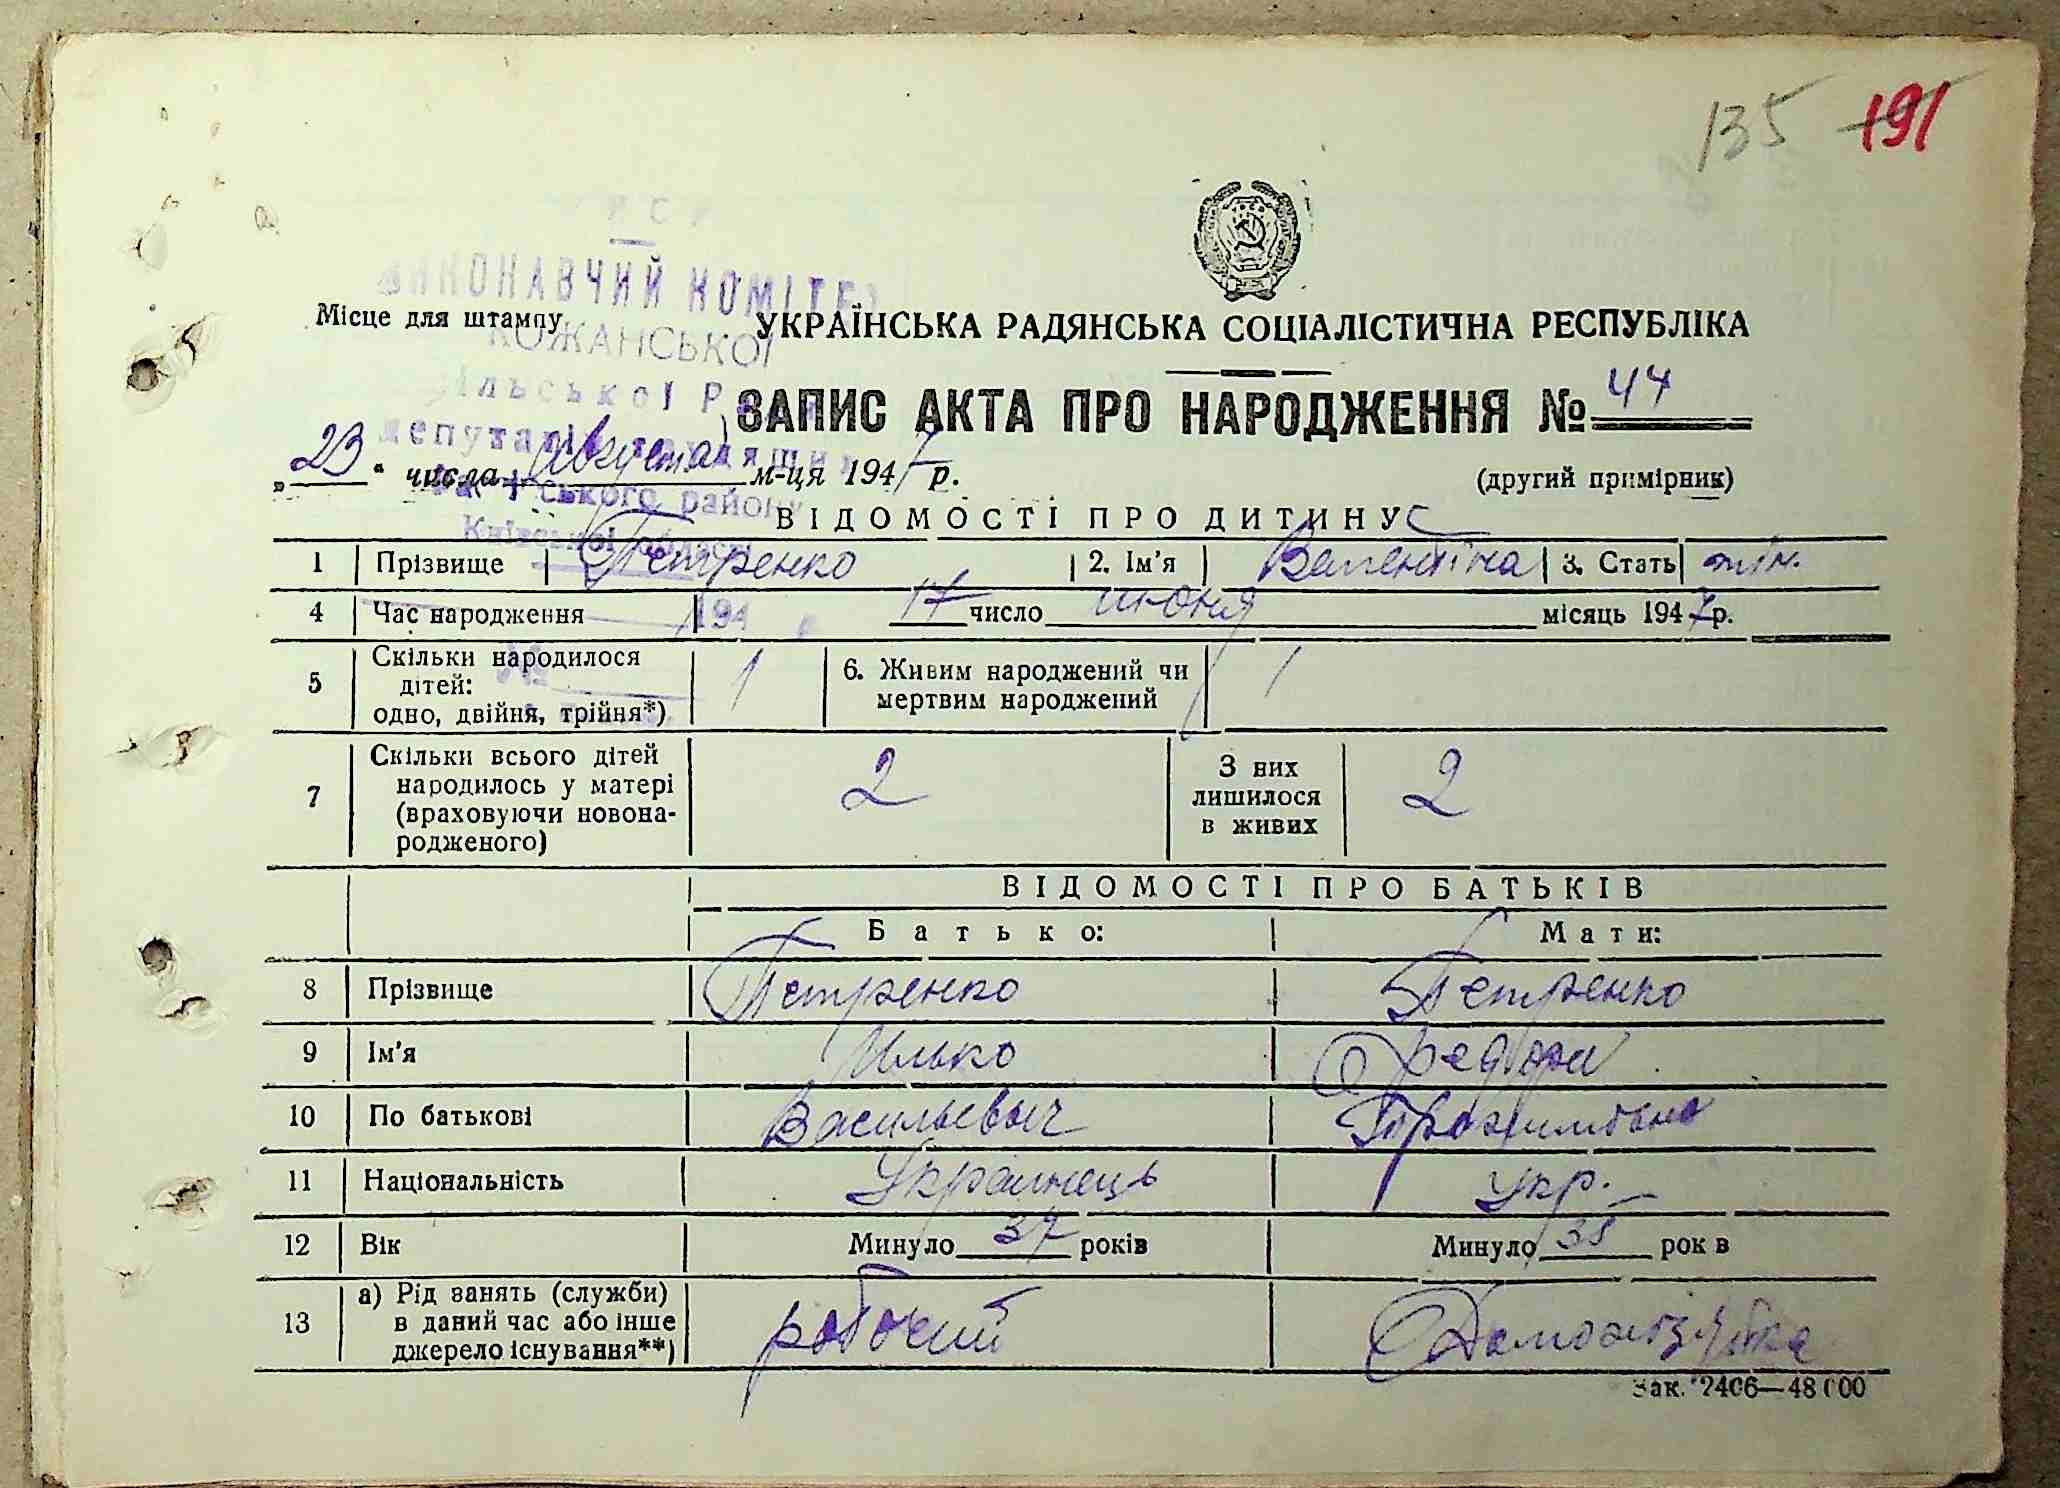 135 191
УРСР
ВИКОНАВЧИЙ КОМІТЕТ
КОЖАНСЬКОЇ
Місце для штампу
УКРАЇНСЬКА РАДЯНСЬКА СОЦІАЛІСТИЧНА РЕСПУБЛІКА
ЗАПИС АКТА ПРО НАРОДЖЕННЯ № 44
„23" числа Августа м-ця 1947 р.
(другий примірник)
району
Київської області
194
№
ВІДОМОСТІ ПРО ДИТИНУ
1 Прізвище Петренко 2. Ім'я Валентіна 3. Стать жін.
4 Час народження 17 число июня місяць 1947 р.
5 Скільки народилося дітей: одно, двійня, трійня*) 1 6. Живим народжений чи мертвим народжений 1
7 Скільки всього дітей народилось у матері (враховуючи новонародженого) 2 З них лишилося в живих 2
ВІДОМОСТІ ПРО БАТЬКІВ
Батько: Мати:
8 Прізвище Петренко Петренко
9 Ім'я Илько
10 По батькові Васильевыч
11 Національність Украинець укр.
12 Вік Минуло 37 років Минуло 38 рок в
13 а) Рід занять (служби) в даний час або інше джерело існування**) робочий Домохозяйка
Зак. 2406—48000